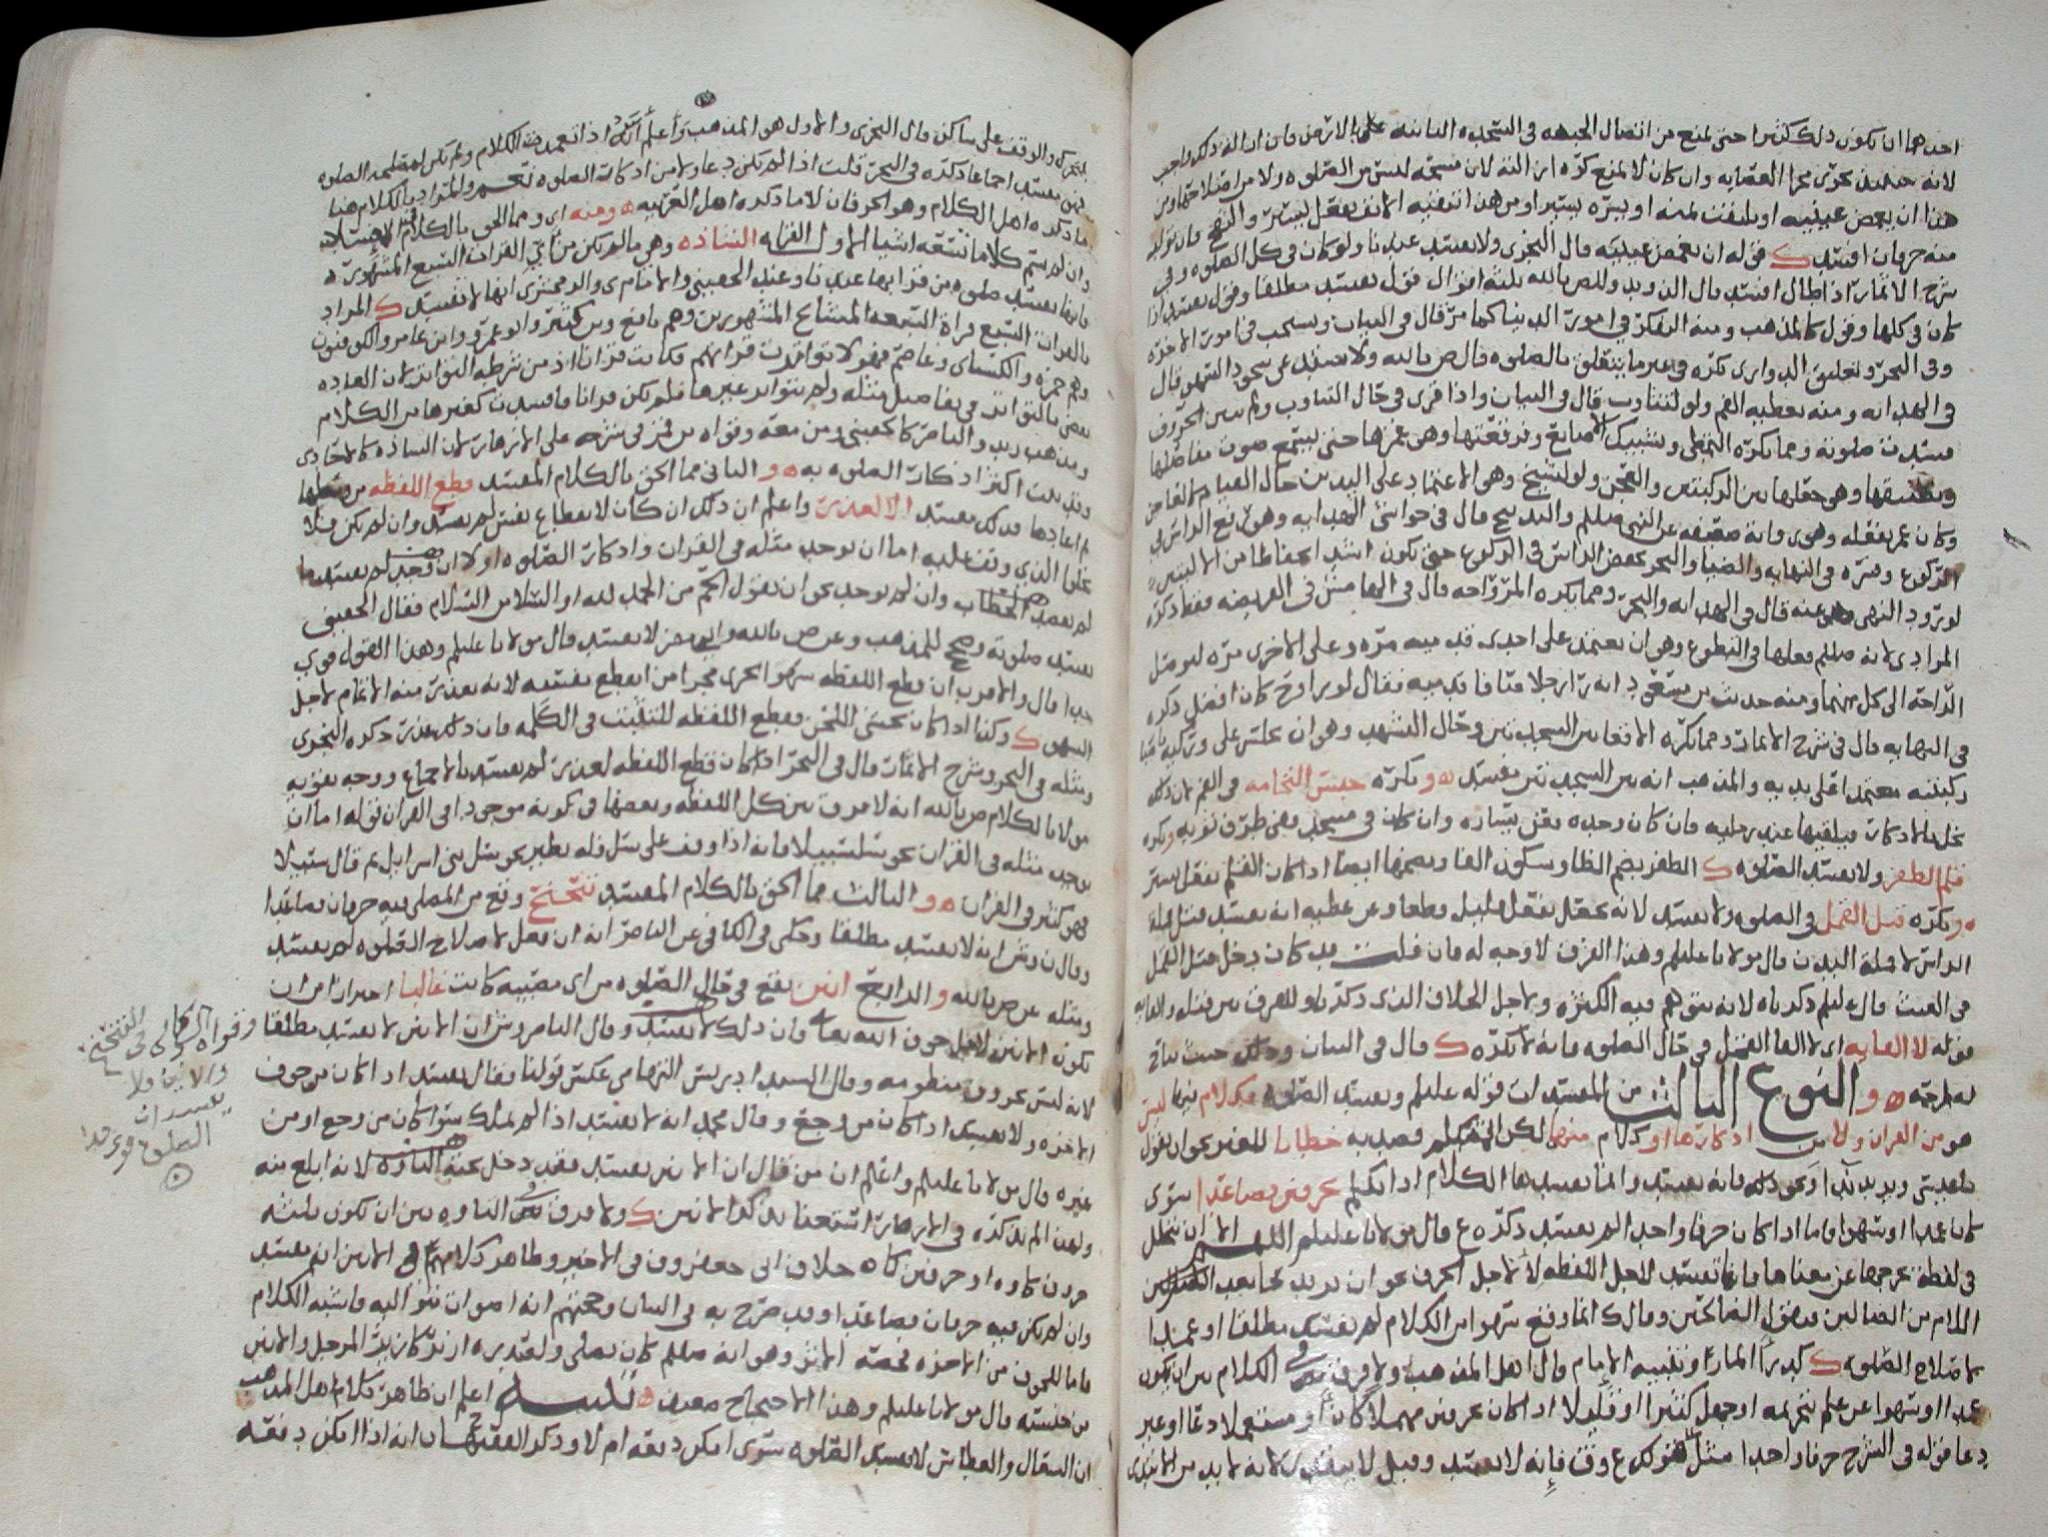 احدهما ان يكون ذلك كثيرا حتى يمنع من اتصال الجبهة في السجده الثانيه على الارض فان ازاله ذلك واجب
لانه حينئذ يجرى مجرا العصابه وان كان لا يمنع كره ازالته لان مسحه ليس من الصلوه ولا من اصلاحها ومن
هذا ان يغمض عينيه او يلتفت يمنه او يسره يسيرا ومن هذا
منه حرفان افسد ك قوله ان يغمض عينيه قال النجرى ولا يفسد عندنا ولو كان في كل الصلوه وفي
شرح الاثمار اذا طال افسد قال الذويد وللص بالله ثلثه اقوال قول يفسد مطلقا وقول يفسد اذا
كان في كلها وقول كالمذهب ومنه التفكر في امور الدنيا كما مر قال في البيان ويستحب في امور الاخره
وفي البحر وتعليق الدوارى يكره في غير ما يتعلق بالصلوه قال ص بالله ولا عن سجود السهو قال
في الهدايه ومنه تغطيه الفم ولو لتثاوب قال في البيان واذا قرى في حال التثاوب ولم يبين الحروف
فسدت صلوته ومما يكره التمطى وتشبيك الاصابع وفرقعتها وهي غمزها حتى يسمع صوت مفاصلها
وتطبيقها وهي جعلها بين الركبتين والعجن ولو لشيخ وهو الاعتماد على اليدين حال القيام
وكان عمر يفعله وهوى فانه عن النبى صللم والتدبيح قال في حواشى الهدايه وهو رفع الراس في
الركوع وفسره في النهايه والضيا والبحر بخفض الراس في الركوع حتى يكون اشد انحطاطا من الاليتين
لورود النهى عنه قال في الهدايه والبحر ومما يكره المراوحه قال في الفريضه فقط ذكره
المرادى لانه صللم فعلها في التطوع وهو ان يعتمد على احدى قدميه مره وعلى الاخرى مره ليوصل
الراحه الى كل منهما ومنه حديث بن مسعود انه را رجلا صافا قدميه فقال لو راوح كان افضل ذكره
في النهايه قال في شرح الاثمار ومما يكره الاقعا بين السجدتين وحال التشهد وهو ان يجلس على وركيه ناصبا
ركبتيه معتمدا على يديه والمذهب انه بين السجدتين يفسد ه ويكره حبس النخامه في الفم لان ذلك
يخل بالاذكار فيلقيها عند رجليه فان كان وحده فعن يساره وان كان في مسجد ففي طرف ثوبه ويكره
قلم الظفر ولا يفسد الصلوه ك الظفر بضم الظا وسكون الفا وبضمها ايضا اذا كان القلم بفعل يسير
ه ويكره قتل القمل في الصلوه ولا يفسد لانه يحصل بفعل قليل قطعا وعن عطيه انه يفسد قتل قمله
الراس لا قمله البدن قال مولانا عليلم وهذا الفرق لا وجه له فان قلت قد كان دخل قتل القمل
في العبث قال عليلم ذكرناه لانه يتوهم فيه الكثره ولاجل الخلاف الذى ذكرنا وللفرق بين قتله والقايه
فقوله لا القايه اى لا القا القمل في حال الصلوه فانه لا يكره ك قال في البيان وذلك حيث يباح
له طرحه ه والنوع الثالث من المفسدات قوله عليلم ويفسد الصلوه بكلام فيها ليس
هو من القران ولا من اذكارها او كلام منهما لكن المتكلم قصد به خطابا للغير نحو ان يقول
يا عيسى ويريد ندا او نحو ذلك فانه يفسد وانما يفسدها الكلام اذا تكلم بحرفين فصاعدا سوى
كان عمدا او سهوا فاما اذا كان حرفا واحدا لم يفسد ذكره ع قال مولانا عليلم اللهم الا ان يبطل
في لفظه يخرجها عن معناها فانها تفسد لاجل اللفظه لا لاجل الحرف نحو ان يريد
اللام من الضالين فيقول الضالحين وقال ك انما وقع سهوا من الكلام لم يفسد مطلقا او عمدا
لاصلاح الصلوه ك كدرا المار او تنبيه الامام قال اهل المذهب ولا فرق في الكلام بين ان يكون
عمدا او سهوا عن علم بتحريمه او جهل كثيرا او قليلا اذا كان بحرفين مهملا كان او مستعملا دعا او غير
دعا قوله في الشرح حرفا واحدا مثل قولك ع وق فانه لا يفسد وقيل لا بد من الابتدى
بمتحرك والوقف على ساكن قال النجرى والاول هو المذهب واعلم انه اذا تعمدت الكلام ولم تكن لمصلحه الصلوه
فهى يفسد اجماعا ذكره في البحر قلت اذا لم تكن دعا ولا من اذكار الصلوه والمراد بالكلام هنا
ما ذكره اهل الكلام وهو الحرفان لا ما ذكره اهل العربيه ه ومنه اى ومما الحق بالكلام المفسد
وان لم يتم كلاما تسعه اشيا الاول القراه الشاذه وهي ما لم يكن من اى القرات السبع المشهوره ه
فانها يفسد صلوه من قرا بها عندنا وعند الحقينى والامام ى والزمخشرى انها لا تفسد ك المراد
بالقرات السبع قراة السبعه المشايخ المشهورين وهم نافع وبن كثير وابو عمرو وابن عامر والكوفيون
وهم حمزه والكسائى وعاصم فهولا تواترت قراتهم فكانت قرانا اذ من شرطه التواتر لان العاده
تقضى بالتواتر في تفاصيل مثله ولم يتواتر غيرها فلم يكن قرانا فافسدت كغيرها من الكلام
ومذهب زيد والناصر كالحقينى ومن معه وقواه بن في شرحه على الازهار لان الشاذه كالاحادى
وقد بنت اكثر اذكار الصلوه به ه و الثانى مما الحق بالكلام المفسد قطع اللفظه من وسطها
ثم اعادها فذلك يفسد الا لعذر واعلم ان ذلك ان كان لانقطاع نفس لم يفسد وان لم يكن فلا
يخلوا الذى وقف عليه اما ان يوجد مثله في القران واذكار الصلوه او لا ان وجد لم يفسد ما
لم يقصد الخطاب وان لم يوجد نحو ان يقول الحم من الحمد لله او السلا من السلام فقال الحقينى
يفسد صلوته وصح للمذهب وعن ص بالله وابى مضر لا يفسد قال مولانا عليلم وهذا القول قوي
جدا قال والاقرب ان قطع اللفظه سهوا يجرى مجرا من انقطع نفسه لانه يعذر منه الاتمام لاجل
السهو ك وكذا اذا كان يخشى اللحن فقطع اللفظه للتثبت في الكلمه فان ذلك عذر ذكره النجرى
ومثله في البحر وشرح الاثمار قال في البحر اذا كان قطع اللفظه لعذر لم يفسد بالاجماع ووجه تقويه
مولانا لكلام ص بالله انه لا فرق بين كل اللفظه وبعضها في كونه موجودا في القران قوله اما ان
يوجد مثله في القران نحو سلسبيلا فانه اذا وقف على سل فله نظير نحو سل بنى اسرايل ثم قال سبيلا
فهو كثير في القران ه و الثالث مما الحق بالكلام المفسد تنحنح وقع من المصلى فيه حرفان فصاعدا
وقال ن وش انه لا يفسد مطلقا وحكى في الكافى عن الناصر انه ان فعل لاصلاح الصلوه لم يفسد
ومثله عن ص بالله و الرابع انين يقع في حال الصلوه من اى مصيبه كانت غالبا احترازا من ان
يكون الانين لاجل خوف الله تعا فان ذلك لا يفسد وقال الناصر وش ان الانين لا يفسد مطلقا
لانه ليس بحروف منظومه وقال السيد ادريس التهامى عكس قولنا فقال يفسد اذا كان من خوف
الاخره ولا يفسد اذا كان من وجع وقال محمد انه لا يفسد اذا لم يملك سوا كان من وجع او من
غيره قال مولانا عليلم واعلم ان من قال ان الانين يفسد فقد دخل تحته التاوه لانه ابلغ منه
ولهذا لم نذكره في الازهار استغنا بذكر الانين ك ولا فرق في التاوه بين ان يكون بثلثه
حروف كاوه او حرفين كاه خلاف ابى جعفر وف في الاخير وظاهر كلامهم في الانين انه يفسد
وان لم يكن فيه حرفان فصاعدا وقد صرح به في البيان وحجتهم انه اصوات متواليه فاشبه الكلام
فاما للخوف من الاخره فحجته الاثر وهو انه صللم كان يصلى ولصدره ازيز كازيز المرجل والانين
من خشيته قال مولانا عليلم وهذا الاحتجاج ضعيف ه تنبيه اعلم ان ظاهر كلام اهل المذهب
ان السعال والعطاس لا يفسد الصلوه سوى امكن دفعه ام لا وذكر الفقيه ان انه اذا امكن دفعه
وقواه في
والانين ولا
يفسدان
الصلوه